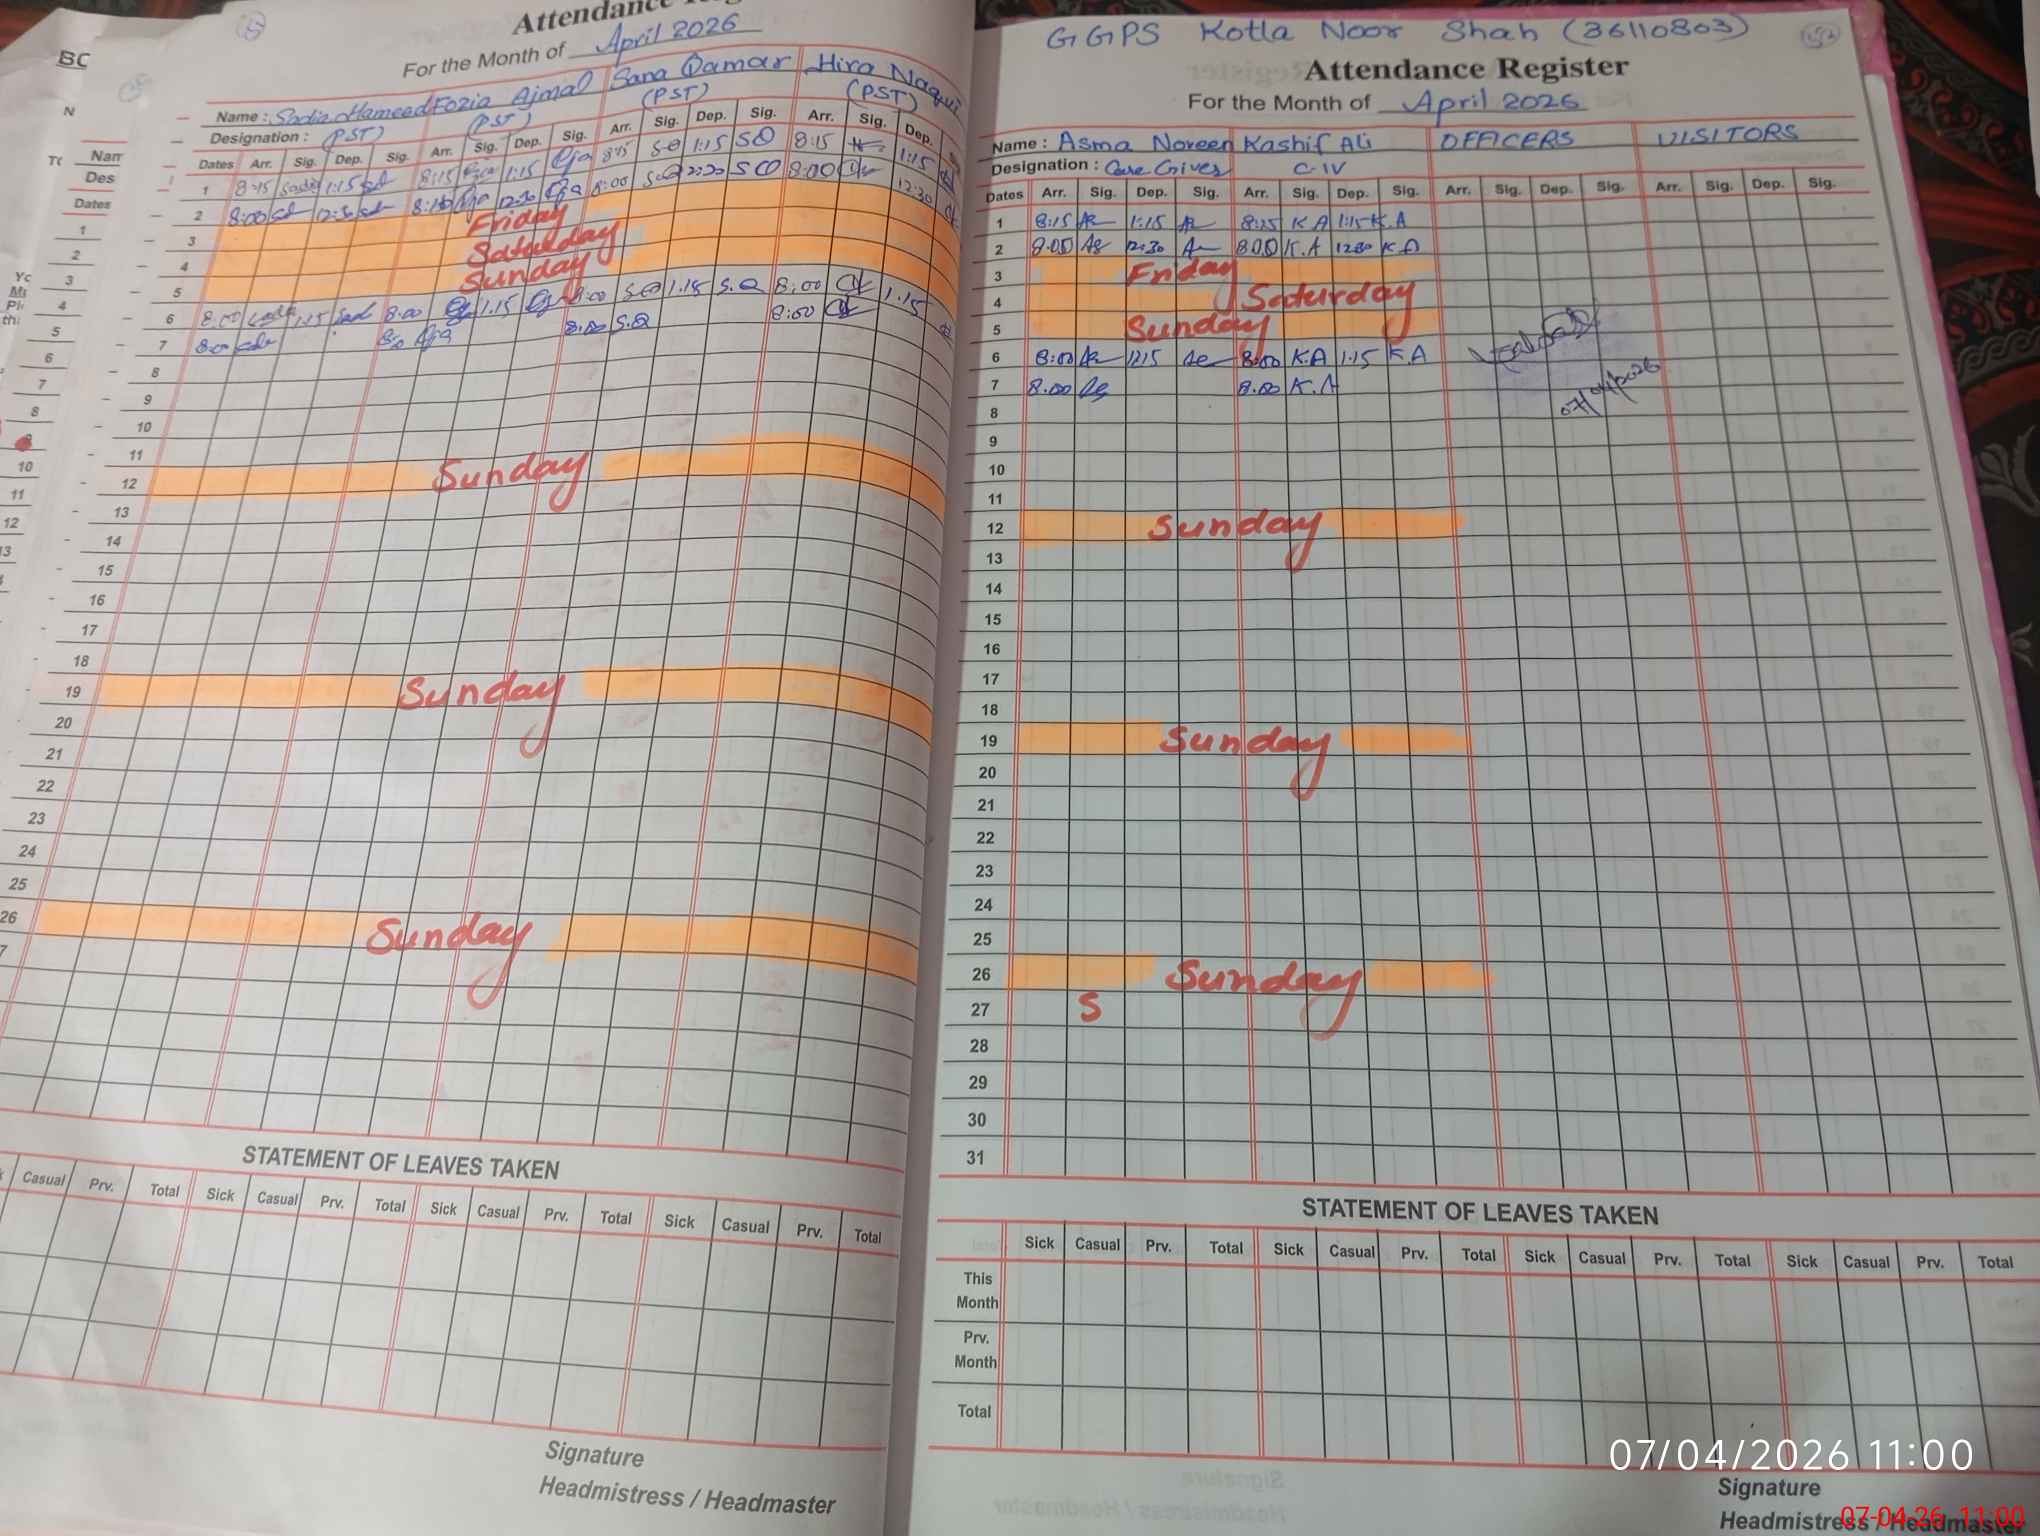 Attendance Reg
For the Month of April 2026
Name : Sadia Hameed Fozia Ajmal Sana Qamar Hira Naqvi
Designation : (PST) (PST) (PST) (PST)
Dates Arr. Sig. Dep. Sig. Arr. Sig. Dep. Sig. Arr. Sig. Dep. Sig. Arr. Sig. Dep.
1 8:15 1:15 8:15 1:15 8:15 SQ 1:15 SQ 8:15 1:15
2 8:00 12:30 12:30 8:00 SQ SQ 8:00 12:30
3 Friday
4 Saturday
5 Sunday
6 8:00 1:15 8.00 1.15 8:00 SQ 1:15 S.Q 8:00 1:15
7 8:00 S.Q 8:00
8
9
10
11
12 Sunday
13
14
15
16
17
18
19 Sunday
20
21
22
23
24
25
26 Sunday
7
STATEMENT OF LEAVES TAKEN
Casual Prv. Total Sick Casual Prv. Total Sick Casual Prv. Total Sick Casual Prv. Total
Signature
Headmistress / Headmaster
BC
N
Nam
Des
Dates
1
2
3
4
5
6
7
8
10
11
12
13
GGPS Kotla Noor Shah (36110803)
Attendance Register
For the Month of April 2026
Name : Asma Noreen Kashif Ali OFFICERS VISITORS
Designation : Care Giver C-IV
Dates Arr. Sig. Dep. Sig. Arr. Sig. Dep. Sig. Arr. Sig. Dep. Sig. Arr. Sig. Dep. Sig.
1 8:15 1:15 8:15 K.A 1:15 K.A
2 8:00 12:30 8:00 K.A 12:30 K.A
3 Friday
4 Saturday
5 Sunday
6 8:00 1:15 8:00 K.A 1:15 K.A
7 8.00 8.00 K.A
07/04/2026
8
9
10
11
12 Sunday
13
14
15
16
17
18
19 Sunday
20
21
22
23
24
25
26 Sunday
27 S
28
29
30
31
STATEMENT OF LEAVES TAKEN
Sick Casual Prv. Total Sick Casual Prv. Total Sick Casual Prv. Total Sick Casual Prv. Total
This Month
Prv. Month
Total
07/04/2026 11:00
Signature
Headmistress / Headmaster
07-04-26 11:00